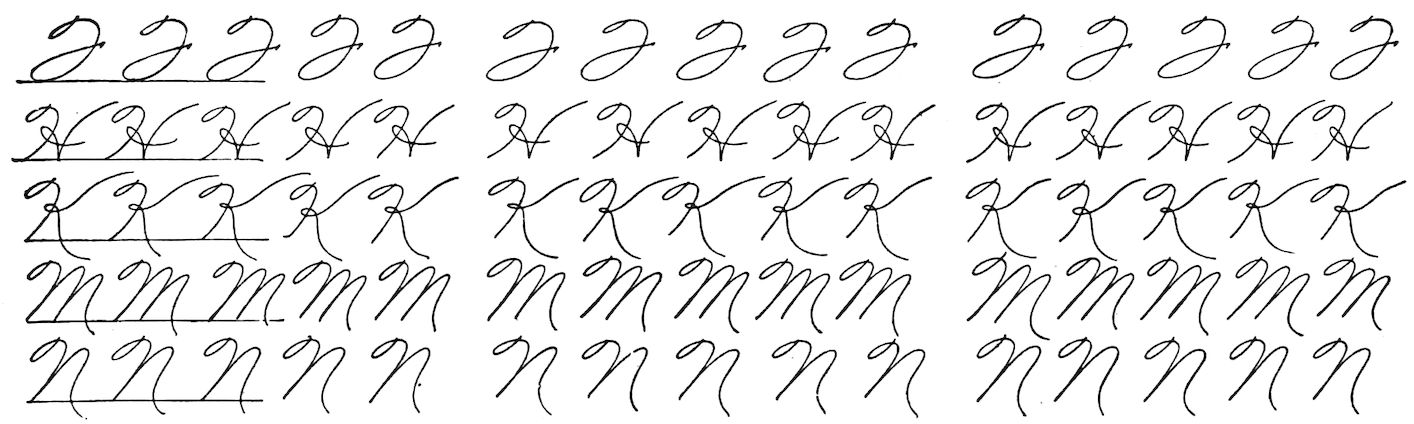 H H H H H H H H H H H H H H H
K K K K K K K K K K K K K K K
M M M M M M M M M M M M M M M
N N N N N N N N N N N N N N N